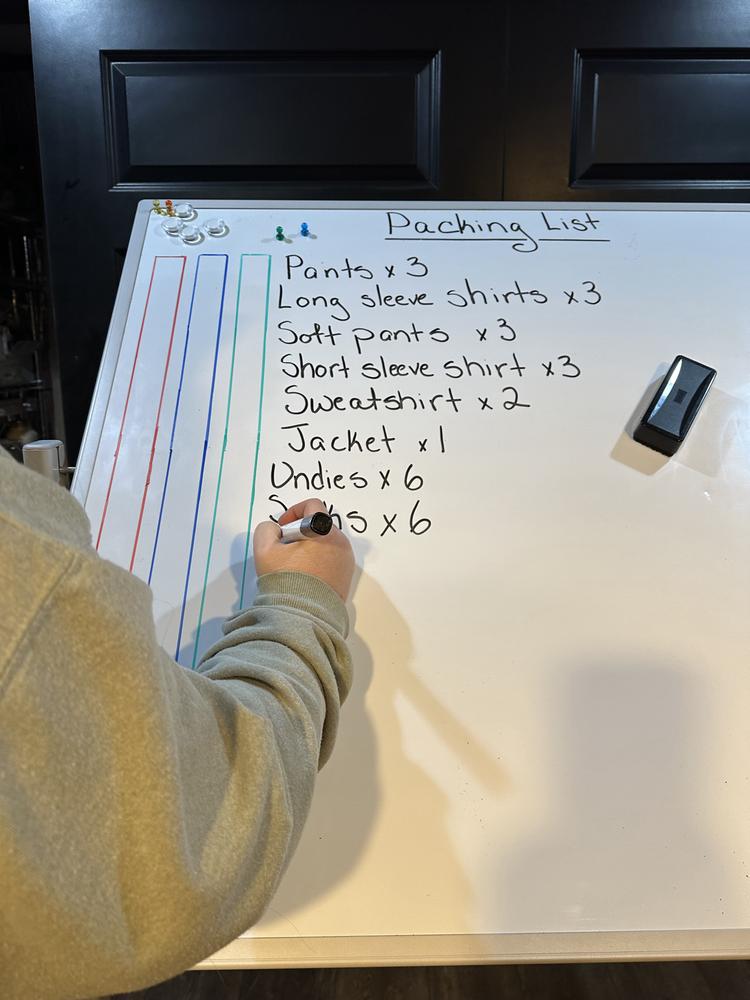 Packing List
Pants x 3
Long sleeve shirts x3
Soft pants x3
Short sleeve shirt x3
Sweatshirt x 2
Jacket x1
Undies x 6
x 6